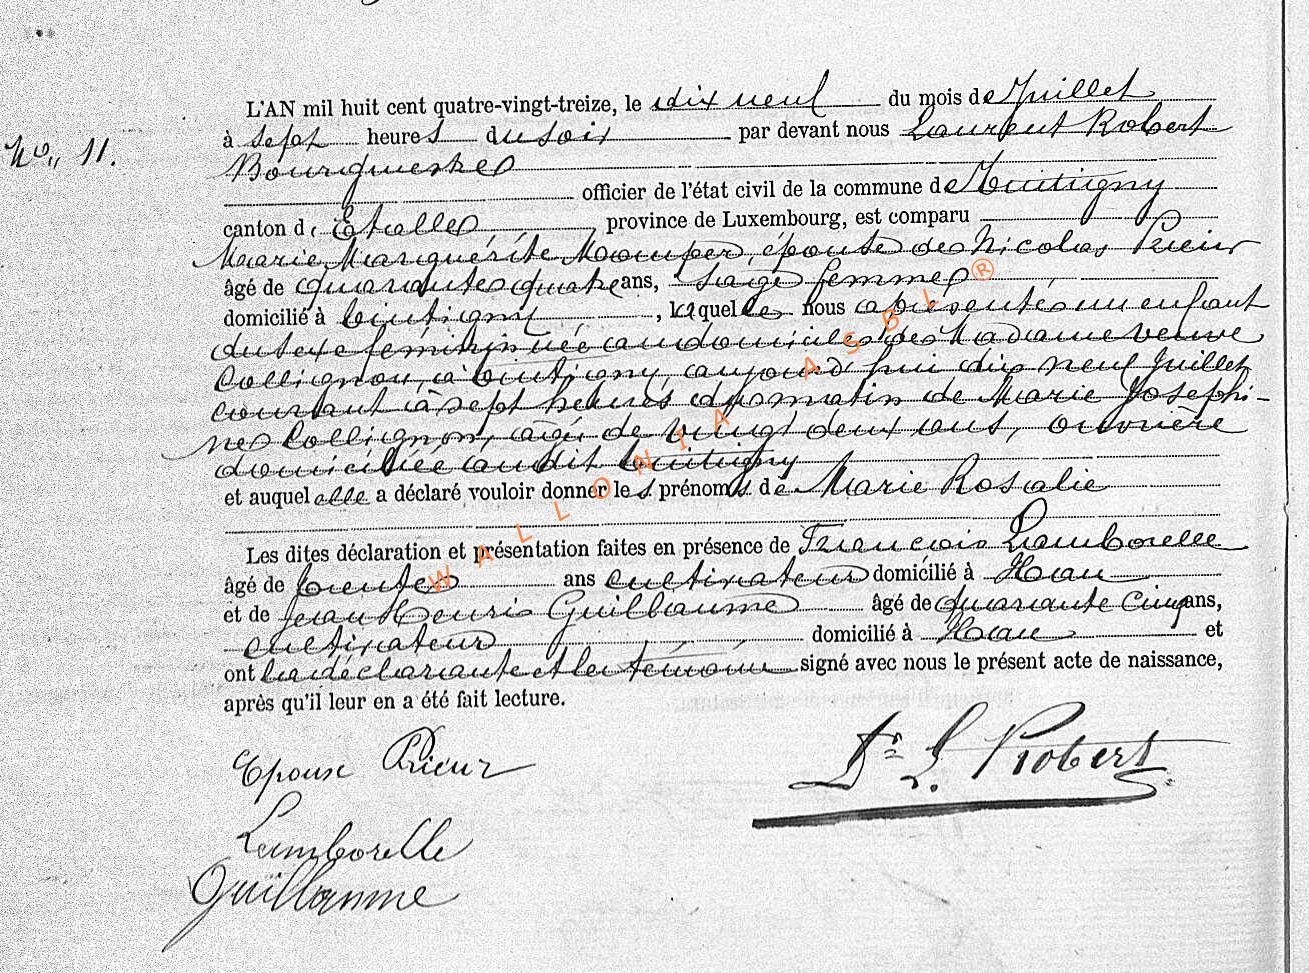 No,, 11.
L'AN mil huit cent quatre-vingt-treize, le dix neuf du mois de Juillet
à sept heures du soir par devant nous Laurent Robert
Bourgmestre
officier de l'état civil de la commune de Tintigny
canton d' Etalle, province de Luxembourg, est comparu
Marie Marguerite épouse de Nicolas Prieur
âgé de quarante quatre ans, sage femme
domicilié à Tintigny, laquelle nous a présenté un enfant
du sexe féminin née au domicile de Madame veuve
Collignon, à Tintigny, aujourd'hui dix neuf Juillet
courant à sept heures du matin de Marie Josephi-
ne Collignon, agée de vingt deux ans, ouvrière
domiciliée au dit Tintigny
et auquel elle a déclaré vouloir donner les prénoms de Marie Rosalie
Les dites déclaration et présentation faites en présence de François Lamborelle
âgé de trente ans cultivateur domicilié à Han
et de Jean Henri Guillaume âgé de quarante cinq ans,
cultivateur domicilié à Han et
ont la déclarante et les témoins signé avec nous le présent acte de naissance,
après qu'il leur en a été fait lecture.
Epouse Prieur
Dr L. Robert
Lamborelle
Guillaume
WALLONIA ASBL®